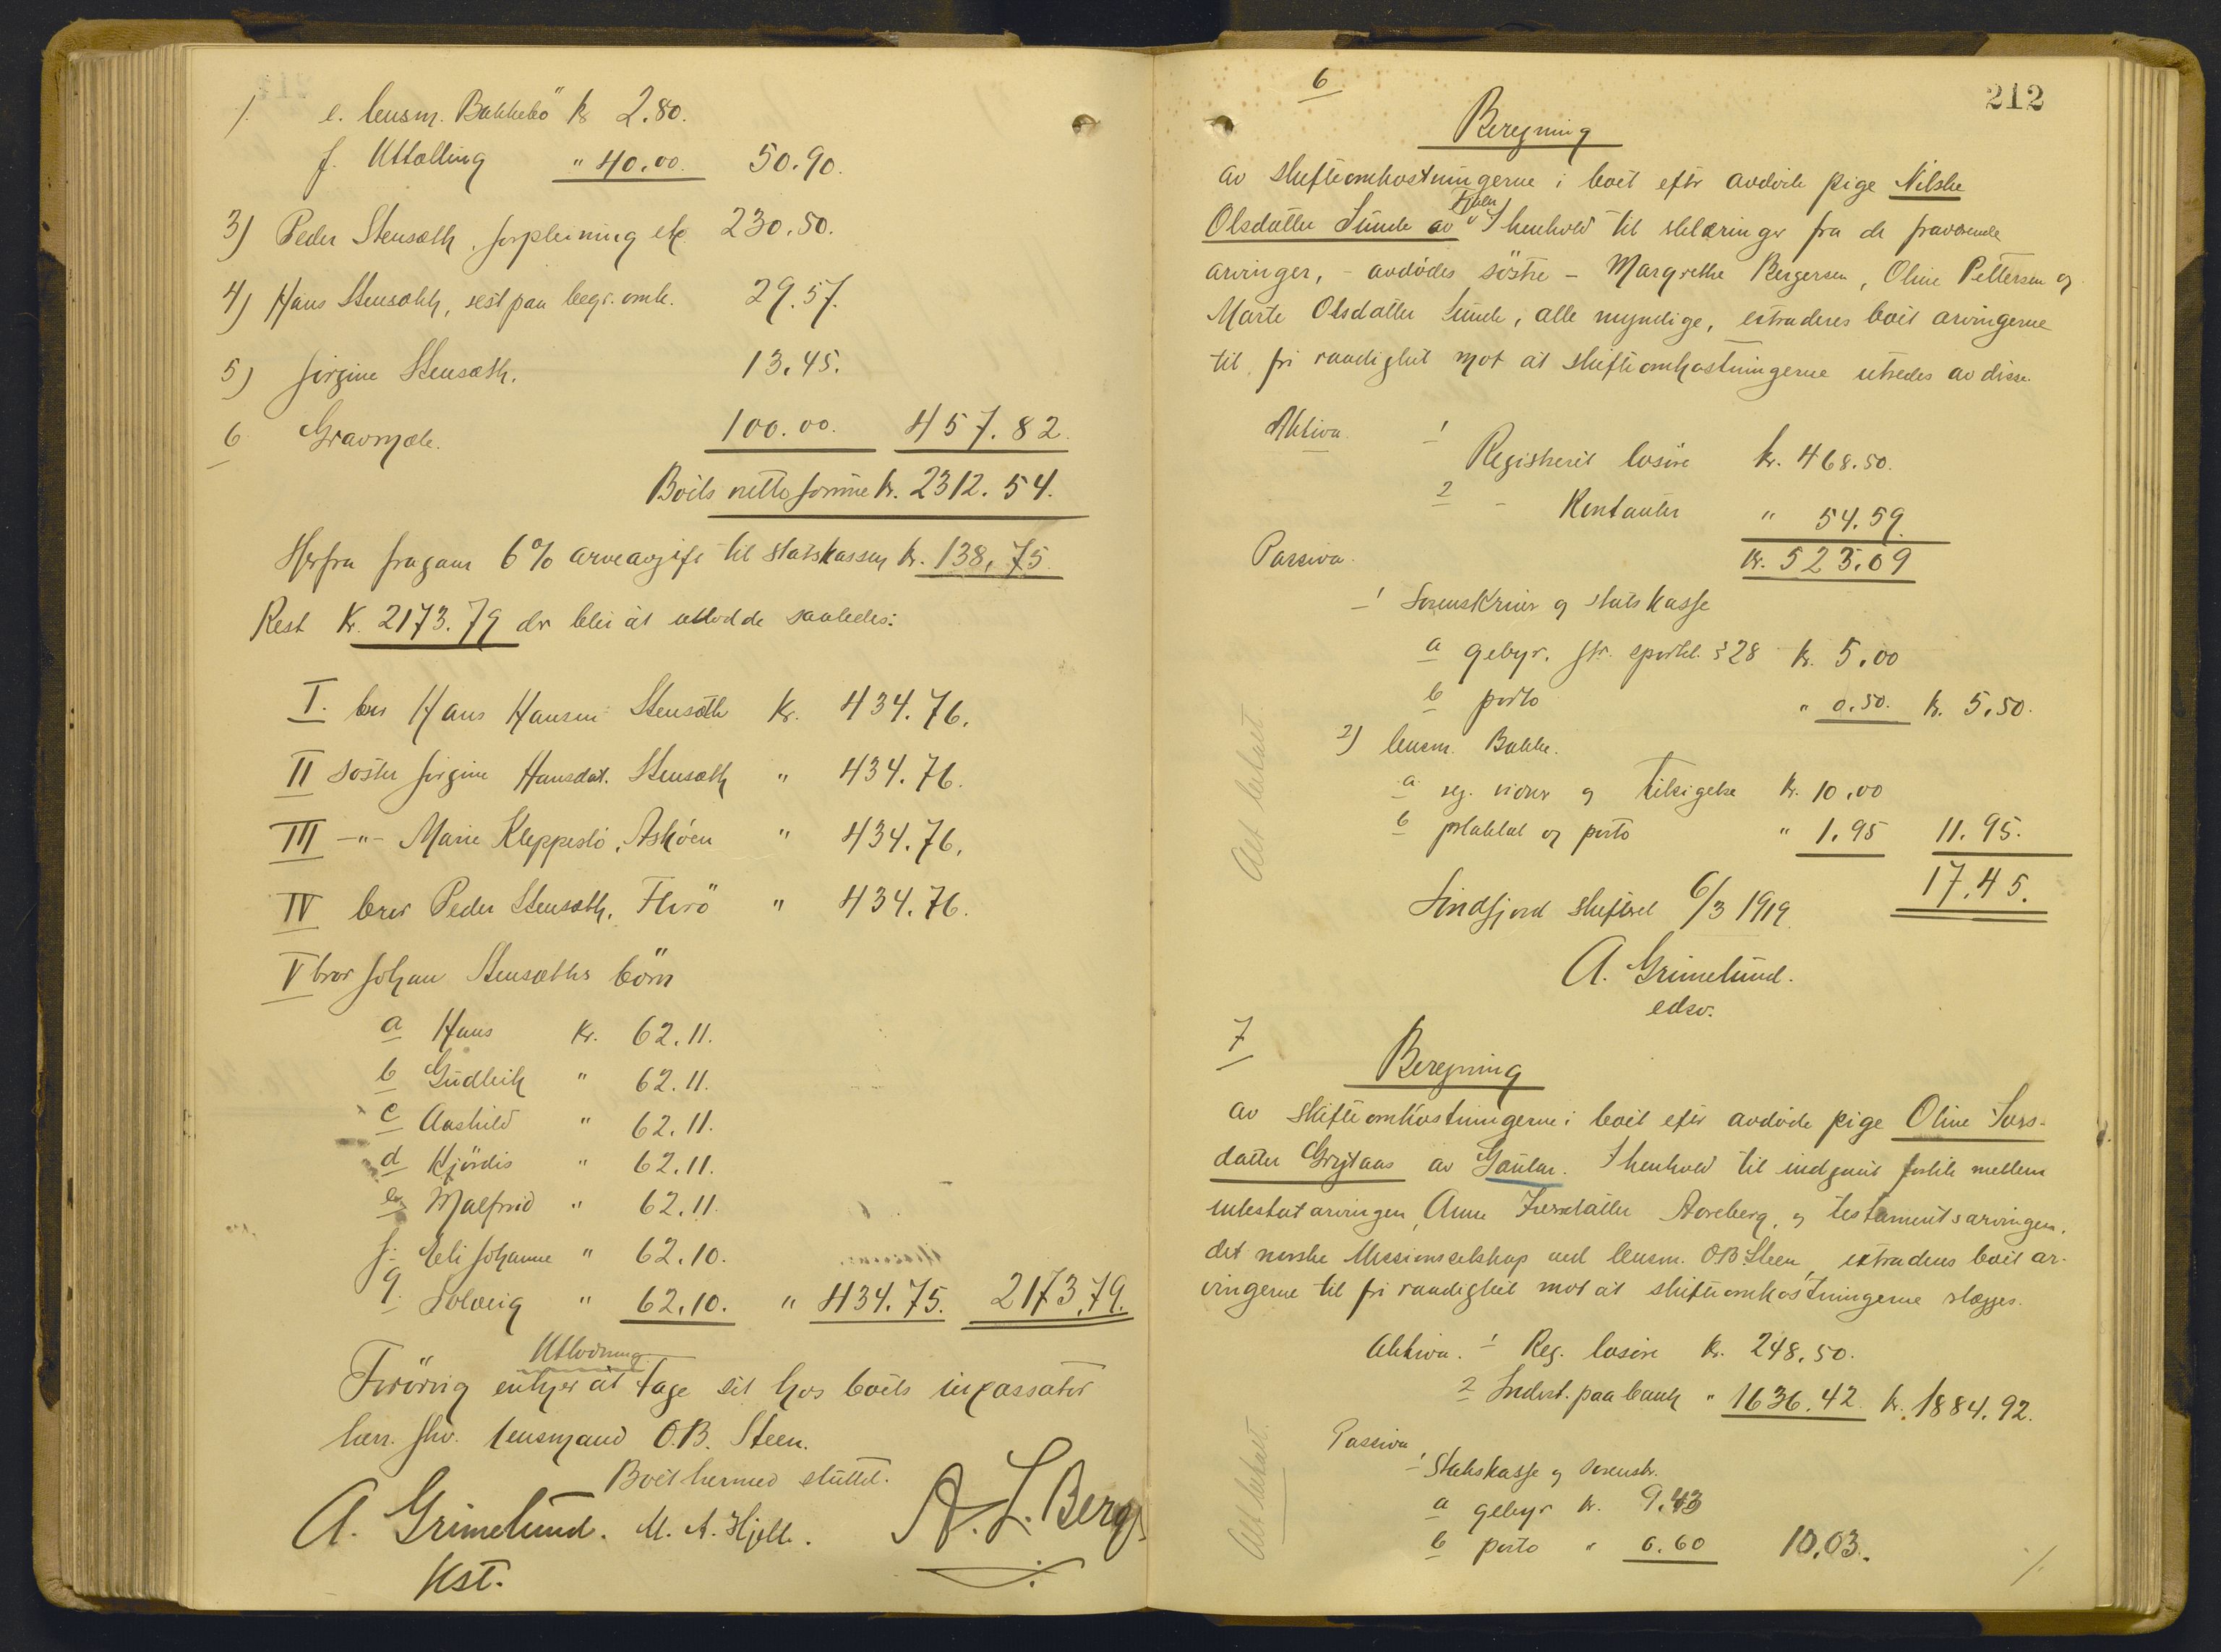 e. lensm. Bakkebö kr 2.80.
f. Utlodning " 40.00. 50.90.
3) Peder Stensæth, forpleining etc 230.50.
4) Hans Stensæth, rest paa begr. omk. 29.57.
5) Jørgine Stensæth. 13.45.
6 Gravmæle. 100.00. 457.82.
Boets netto somme kr. 2312.54.
Herfra fragaar 6% arveavgift til statskassen kr. 138,75.
Rest kr. 2173.79 der blir at utlodde saaledes:
I. bror Hans Hansen Stensæth kr. 434.76.
II søster Jørgine Hansdat. Stensæth " 434.76.
III -"- Marie Kleppestö, Asköen " 434.76.
IV bror Peder Stensæth, Florö " 434.76.
V bror Johan Stensæths börn
a Hans kr. 62.11.
b Gudleik " 62.11.
c Aashild " 62.11.
d Hjördis " 62.11.
e Malfrid " 62.11.
f. Eli Johanne " 62.10.
g. Solveig " 62.10. " 434.75. 2173.79.
Utlodning
enhver at tage sit hos boets incassator
lensmand O.B. Steen.
Boet hermed sluttet.
A. Grimelund. M. A. Hjelle. A. L. Berg
Kst.
212
6
Beregning
av skifteomkostningerne i boet efter avdöde pige Nilske
Fjaler
Olsdatter Sunde av I henhold til erklæringer fra de fraværende
arvinger, - avdödes söstre - Margrethe Bergersen, Oline Pettersen og
Marte Olsdatter Sunde, alle myndige, extraderes boet arvingerne
til fri raadighet mot at skifteomkostningerne utredes av disse.
Aktiva. 1 Registreret lösöre kr. 468.50.
2 - Kontanter " 54.59.
kr. 523.09
Passiva.
1 Sorenskriver og statskasse
a gebyr. sportel. § 28 kr. 5.00
b porto " 0.50. kr. 5.50.
2) lensm. Bakke.
a reg. vidner og tilsigelse kr. 10.00
b plakat og porto " 1.95 11.95.
17.45.
Alt betalt.
Söndfjord skifteret 6/3 1919.
A. Grimelund.
edsv.
7
Beregning
av skifteomkostningerne i boet efter avdöde pige Oline Lars-
datter Grytaas av Gaular. I henhold til indgaat forlik mellem
intestatarvingen, Anne Iversdatter Aareberg, og testamentsarvingen,
det norske Missionsselskap ved lensm. O.B. Steen, extraderes boet ar-
vingerne til fri raadighet mot at skifteomkostningerne utlægges.
Aktiva. 1 Reg. lösöre kr. 248.50.
2 Indest. paa bank " 1636.42 kr. 1884.92.
Passiva
1 Statskasse og sorenskr.
a gebyr kr. 9.43
b porto " 0.60 10.03.
Alt betalt.